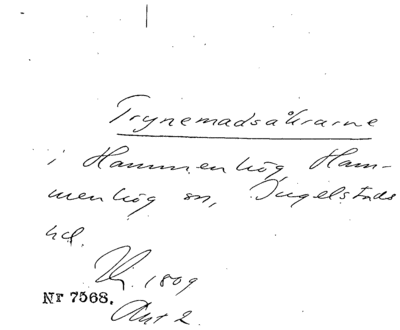 Trynemadsåkrarne
i Hammenhög, Ham-
menhög sn, Ingelstads
hd.
1809
Nr 7568.
Akt 2.